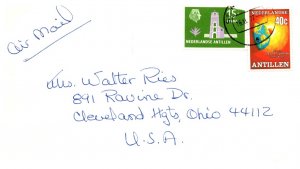 Air Mail
Mrs. Walter Ries
891 Ravine Dr.
Cleveland Hgts, Ohio 44112
U.S.A.
15
NEDERLANDSE ANTILLEN
NEDERLANDSE
40c
ANTILLEN